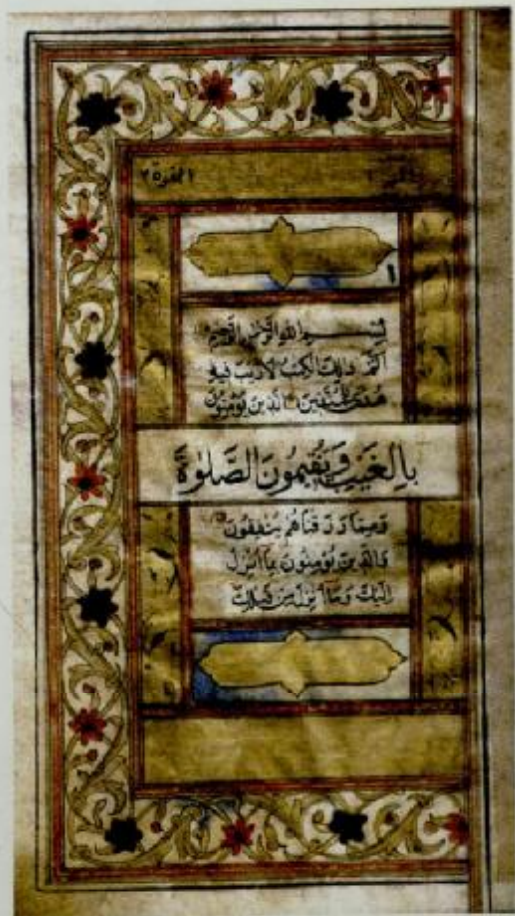 البقرة ٢
١
بِسْمِ اللهِ الرَّحْمٰنِ الرَّحِيْمِ
الٓمّٓ ذٰلِكَ الْكِتٰبُ لَا رَيْبَ فِيْهِ
هُدًى لِّلْمُتَّقِيْنَ الَّذِيْنَ يُؤْمِنُوْنَ
بِالْغَيْبِ وَيُقِيْمُوْنَ الصَّلٰوةَ
وَمِمَّا رَزَقْنَاهُمْ يُنْفِقُوْنَ
وَالَّذِيْنَ يُؤْمِنُوْنَ بِمَآ اُنْزِلَ
اِلَيْكَ وَمَآ اُنْزِلَ مِنْ قَبْلِكَ